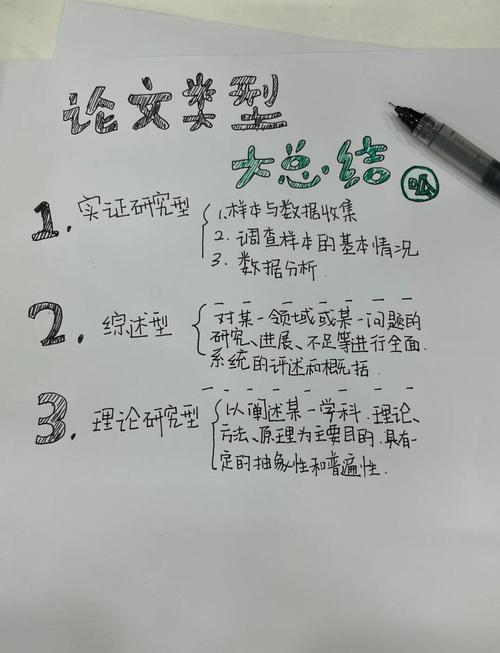 论文类型
大总结
1. 实证研究型
1. 样本与数据收集
2. 调查样本的基本情况
3. 数据分析.
2. 综述型
对某一领域或某一问题的
研究、进展、不足等进行全面.
系统的评述和概括.
3. 理论研究型
以阐述某一学科.理论、
方法、原理为主要目的.具有一
定的抽象性和普遍性.